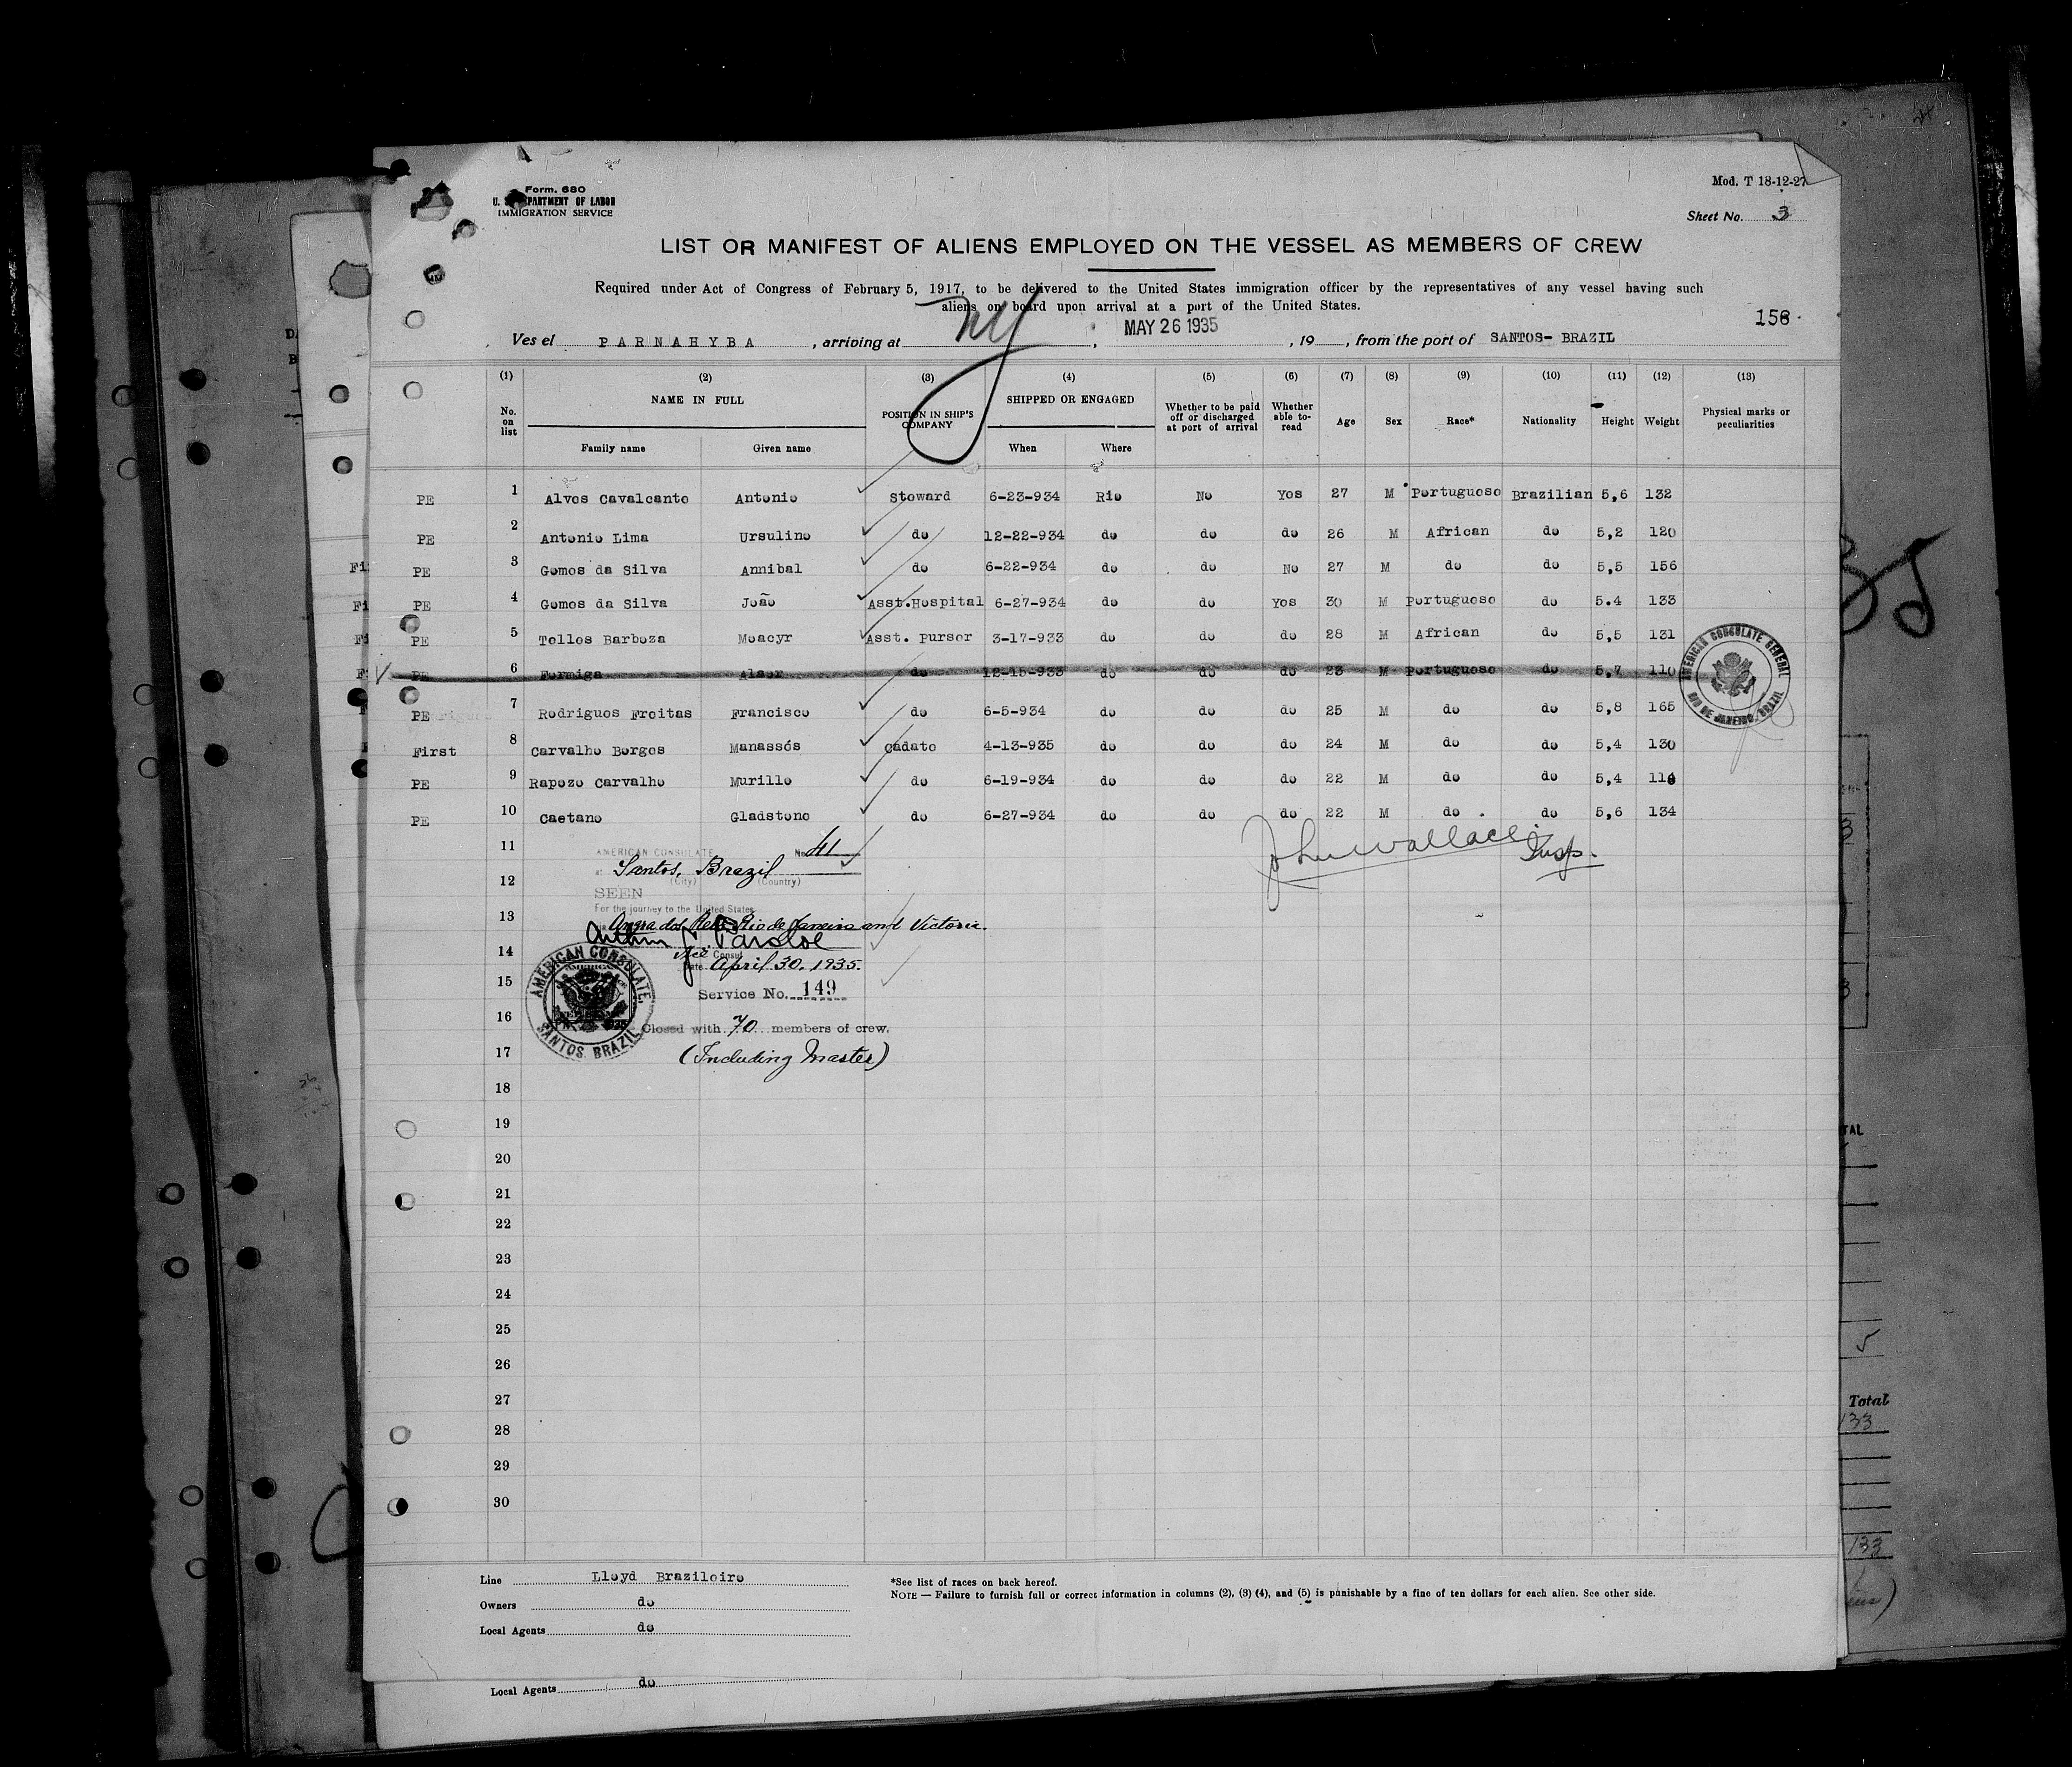 Form. 680
U. S. DEPARTMENT OF LABOR
IMMIGRATION SERVICE
Mod. T 18-12-27
Sheet No. 3
LIST OR MANIFEST OF ALIENS EMPLOYED ON THE VESSEL AS MEMBERS OF CREW
Required under Act of Congress of February 5, 1917, to be delivered to the United States immigration officer by the representatives of any vessel having such
aliens on board upon arrival at a port of the United States.
158
Ves el PARNAHYBA , arriving at NY , MAY 26 1935 , 19 , from the port of SANTOS- BRAZIL
(1) (2) (3) (4) (5) (6) (7) (8) (9) (10) (11) (12) (13)
No. on list NAME IN FULL POSITION IN SHIP'S COMPANY SHIPPED OR ENGAGED Whether to be paid off or discharged at port of arrival Whether able to- read Age Sex Race* Nationality Height Weight Physical marks or peculiarities
Family name Given name When Where
PE 1 Alves Cavalcante Antonio Steward 6-23-934 Rio No Yes 27 M Portuguese Brazilian 5,6 132
PE 2 Antonio Lima Ursulino do 12-22-934 do do do 26 M African do 5,2 120
PE 3 Gomes da Silva Annibal do 6-22-934 do do No 27 M do do 5,5 156
PE 4 Gomes da Silva João Asst.Hospital 6-27-934 do do Yes 30 M Portuguese do 5.4 133
PE 5 Telles Barboza Moacyr Asst. Purser 3-17-933 do do do 28 M African do 5,5 131
PE 6 Formiga Alaor do 12-15-933 do do do 23 M Portuguese do 5,7 110
PE 7 Rodrigues Freitas Francisco do 6-5-934 do do do 25 M do do 5,8 165
First 8 Carvalho Borges Manassés Cadate 4-13-935 do do do 24 M do do 5,4 130
PE 9 Rapozo Carvalho Murillo do 6-19-934 do do do 22 M do do 5,4 118
PE 10 Caetano Gladstone do 6-27-934 do do do 22 M do do 5,6 134
AMERICAN CONSULATE GENERAL
RIO DE JANEIRO, BRAZIL
John Wallace Insp.
11
AMERICAN CONSULATE No. 41
at Santos, Brazil
12
(City) (Country)
SEEN
For the journey to the United States
13
Angra dos Reis Rio de Janeiro and Victoria.
Arthur F. Pardoe
14
Vice Consul
Date April 30, 1935.
15
Service No. 149
AMERICAN CONSULATE,
SANTOS, BRAZIL
16
Closed with 70 members of crew.
17
(Including Master)
18
19
20
21
22
23
24
25
26
27
28
29
30
Line Lloyd Braziloiro
Owners do
Local Agents do
*See list of races on back hereof.
NOTE — Failure to furnish full or correct information in columns (2), (3) (4), and (5) is punishable by a fine of ten dollars for each alien. See other side.
Local Agents do
Total
133
133